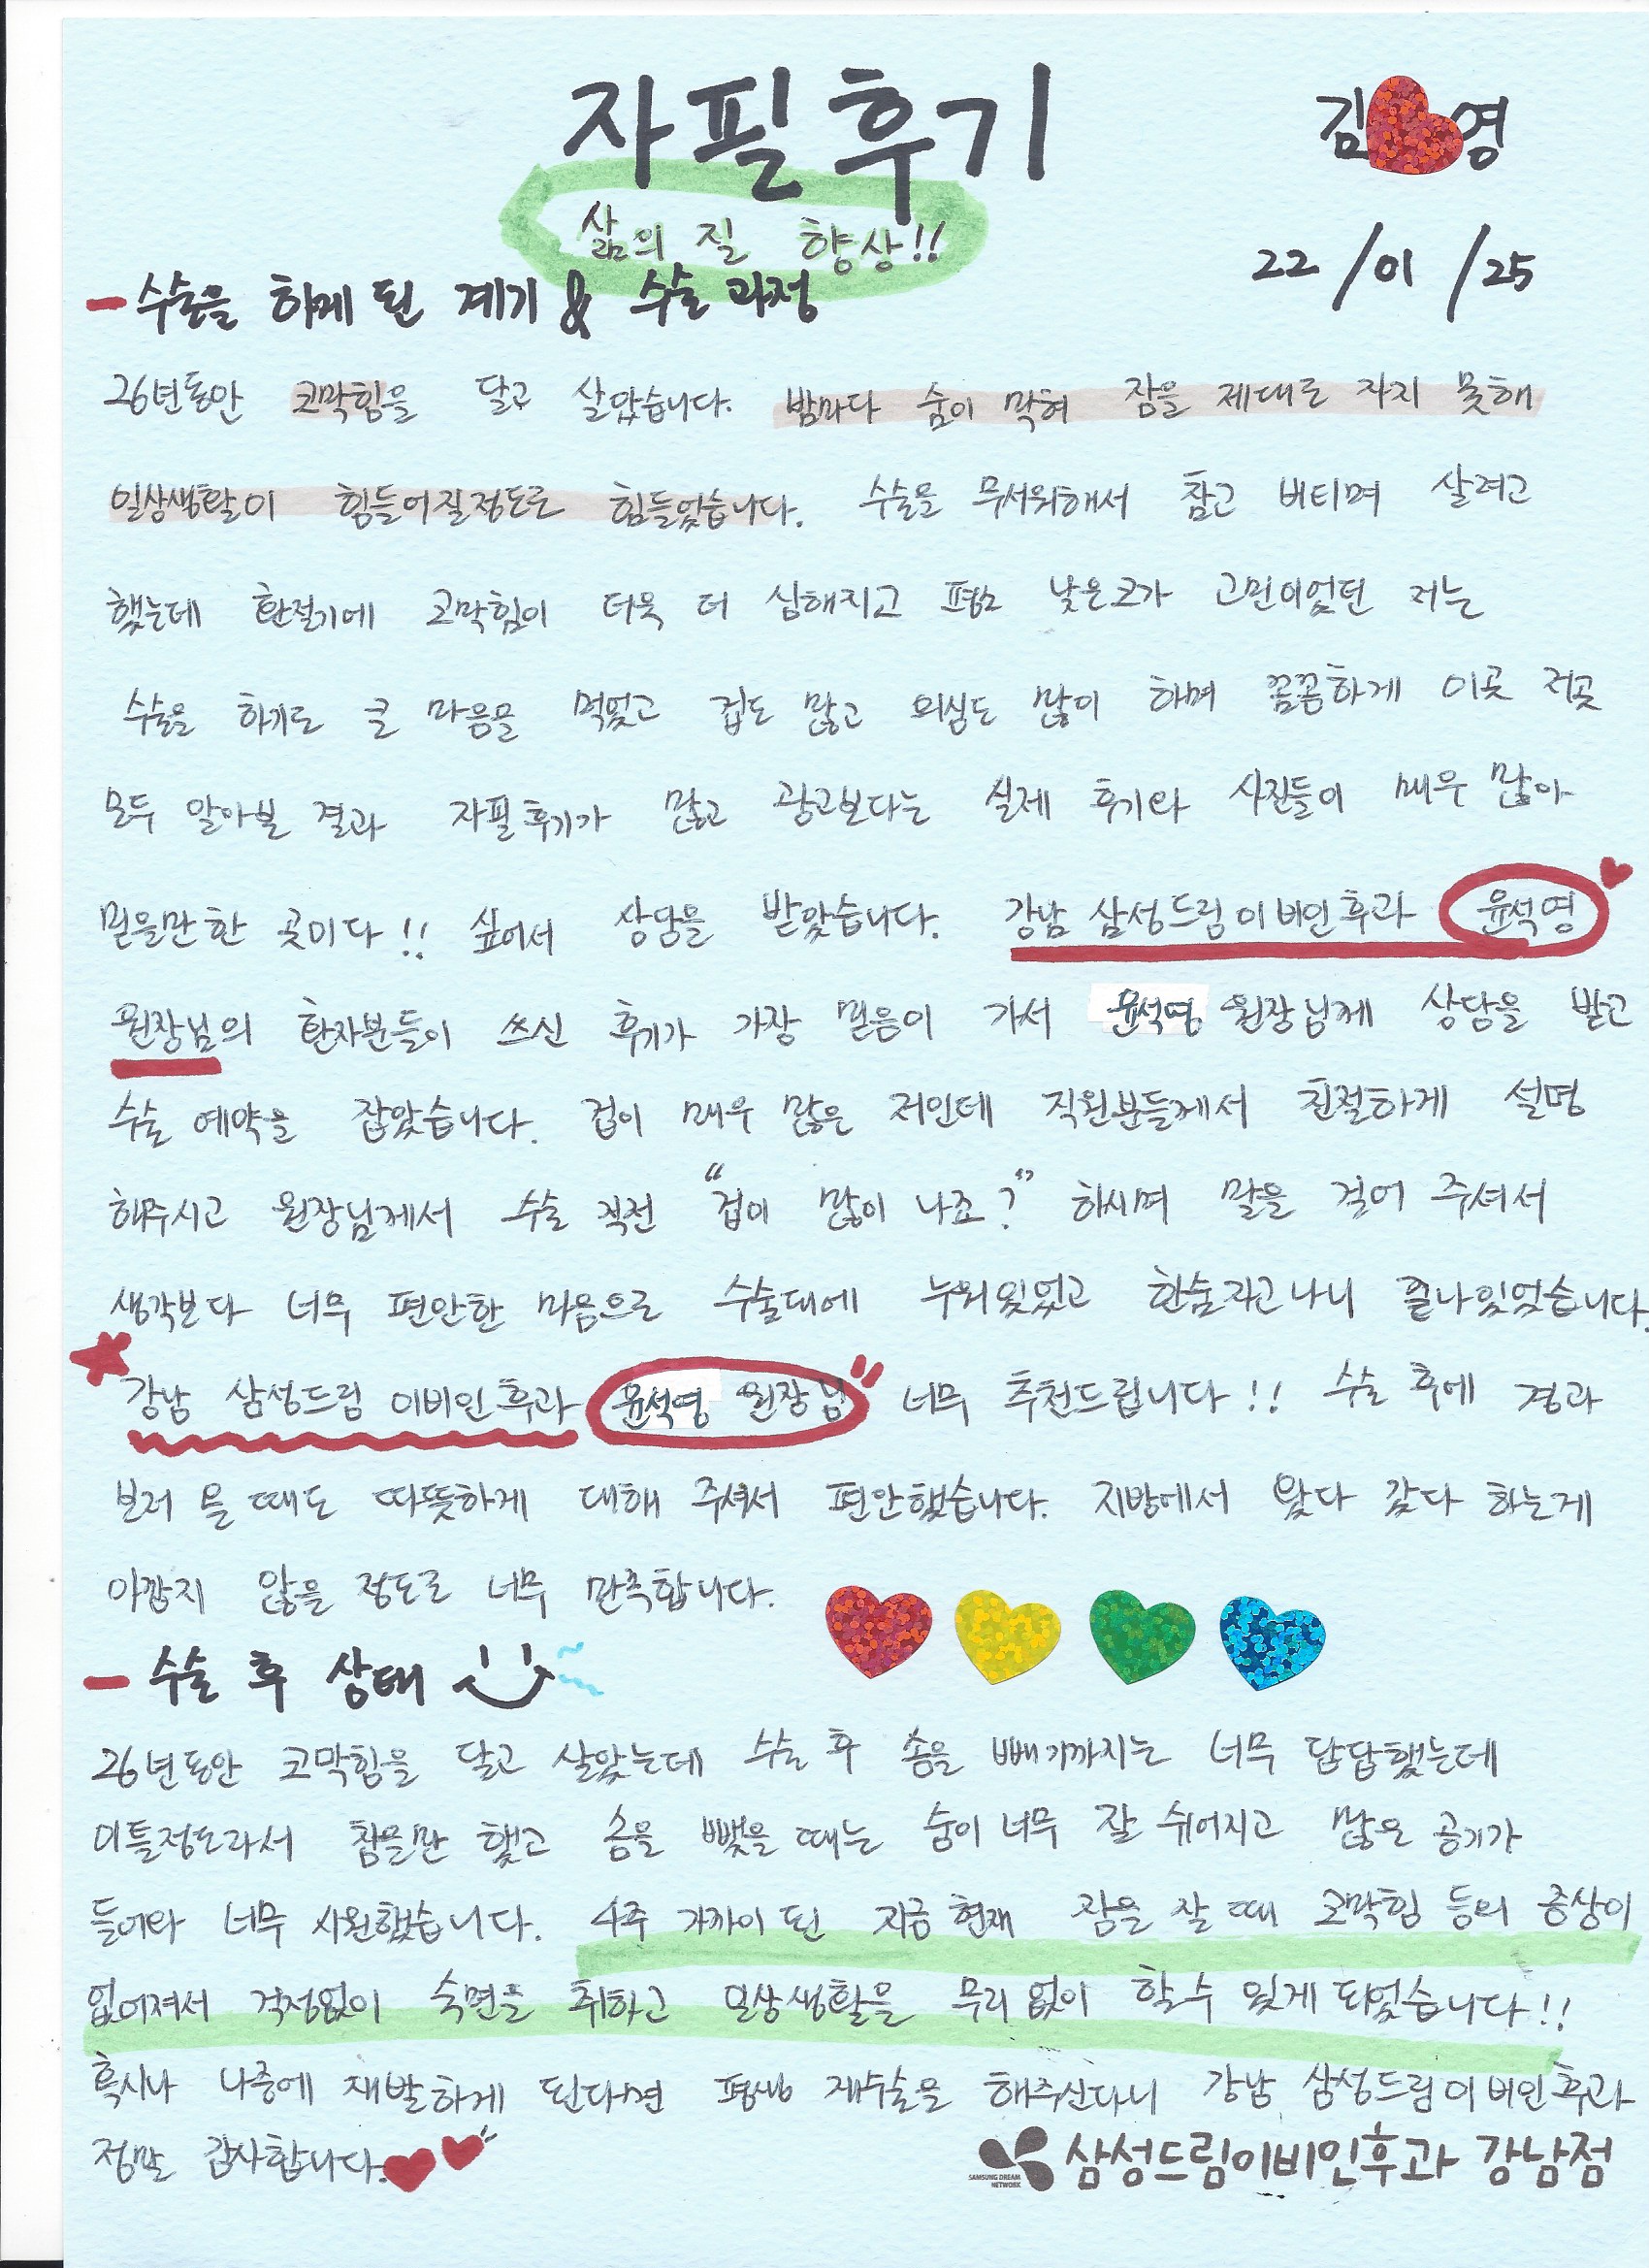 자필후기
김 영
삶의 질 향상!!
22/01/25
- 수술을 하게 된 계기 & 수술 과정
26년동안 코막힘을 달고 살았습니다. 밤마다 숨이 막혀 잠을 제대로 자지 못해
일상생활이 힘들어질정도로 힘들었습니다. 수술을 무서워해서 참고 버티며 살려고
했는데 환절기에 코막힘이 더욱 더 심해지고 평소 낮은코가 고민이었던 저는
수술을 하기로 큰 마음을 먹었고 겁도 많고 의심도 많이 하며 꼼꼼하게 이곳 저곳
모두 알아본 결과 자필후기가 많고 광고보다는 실제 후기와 사진들이 매우 많아
믿을만한 곳이다!! 싶어서 상담을 받았습니다. 강남 삼성드림이비인후과 윤석영
원장님의 환자분들이 쓰신 후기가 가장 믿음이 가서 윤석영 원장님께 상담을 받고
수술 예약을 잡았습니다. 겁이 매우 많은 저인데 직원분들께서 친절하게 설명
해주시고 원장님께서 수술 직전 "겁이 많이 나죠?" 하시며 말을 걸어 주셔서
생각보다 너무 편안한 마음으로 수술대에 누워있었고 한숨자고나니 끝나있었습니다.
강남 삼성드림 이비인후과 윤석영 원장님 너무 추천드립니다!! 수술 후에 경과
보러 올 때도 따뜻하게 대해 주셔서 편안했습니다. 지방에서 왔다 갔다 하는게
아깝지 않을 정도로 너무 만족합니다.
- 수술 후 상태
26년동안 코막힘을 달고 살았는데 수술 후 솜을 빼기까지는 너무 답답했는데
이틀정도라서 참을만 했고 솜을 뺐을 때는 숨이 너무 잘 쉬어지고 많은 공기가
들어와 너무 시원했습니다. 4주 가까이 된 지금 현재 잠을 잘 때 코막힘 등의 증상이
없어져서 걱정없이 숙면을 취하고 일상생활을 무리 없이 할 수 있게 되었습니다!!
혹시나 나중에 재발하게 된다면 평생 재수술을 해주신다니 강남 삼성드림이비인후과
정말 감사합니다.
SAMSUNG DREAM NETWORK 삼성드림이비인후과 강남점